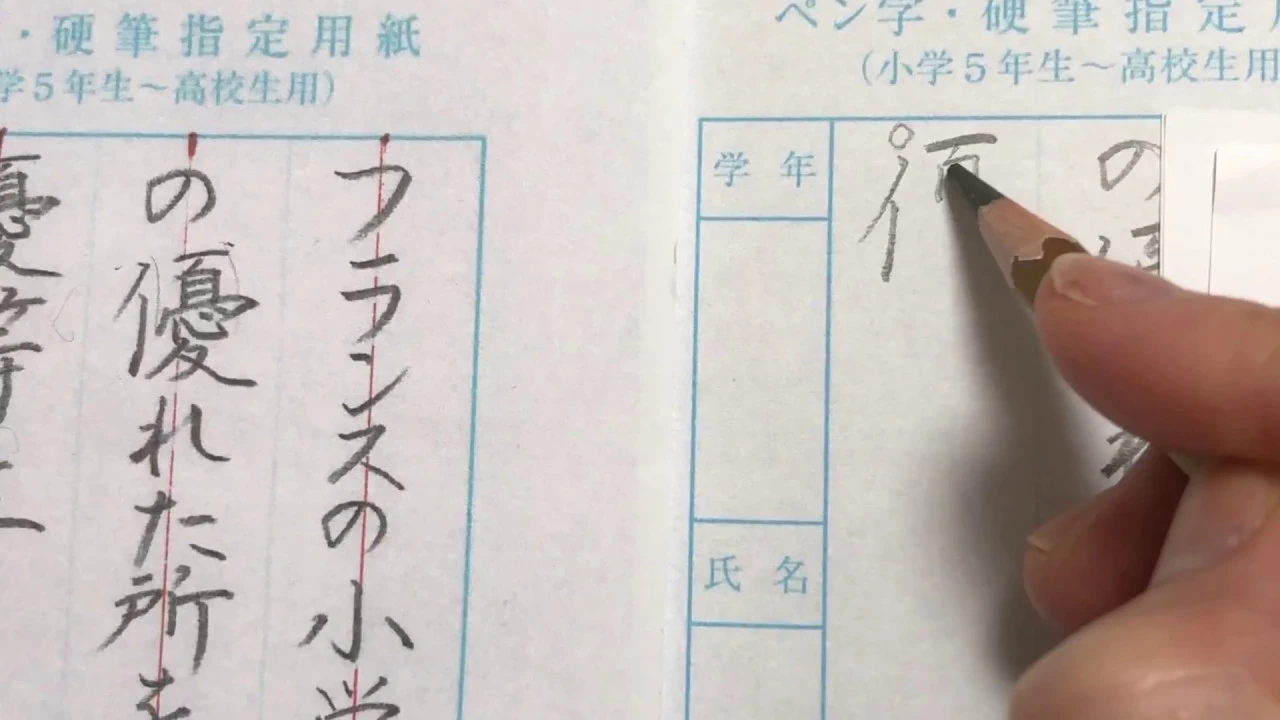 ・硬筆指定用紙
学5年生～高校生用)
フランスの小学
の優れた所を
優等
ペン字・硬筆指定
(小学5年生～高校生用
の
学年
氏名